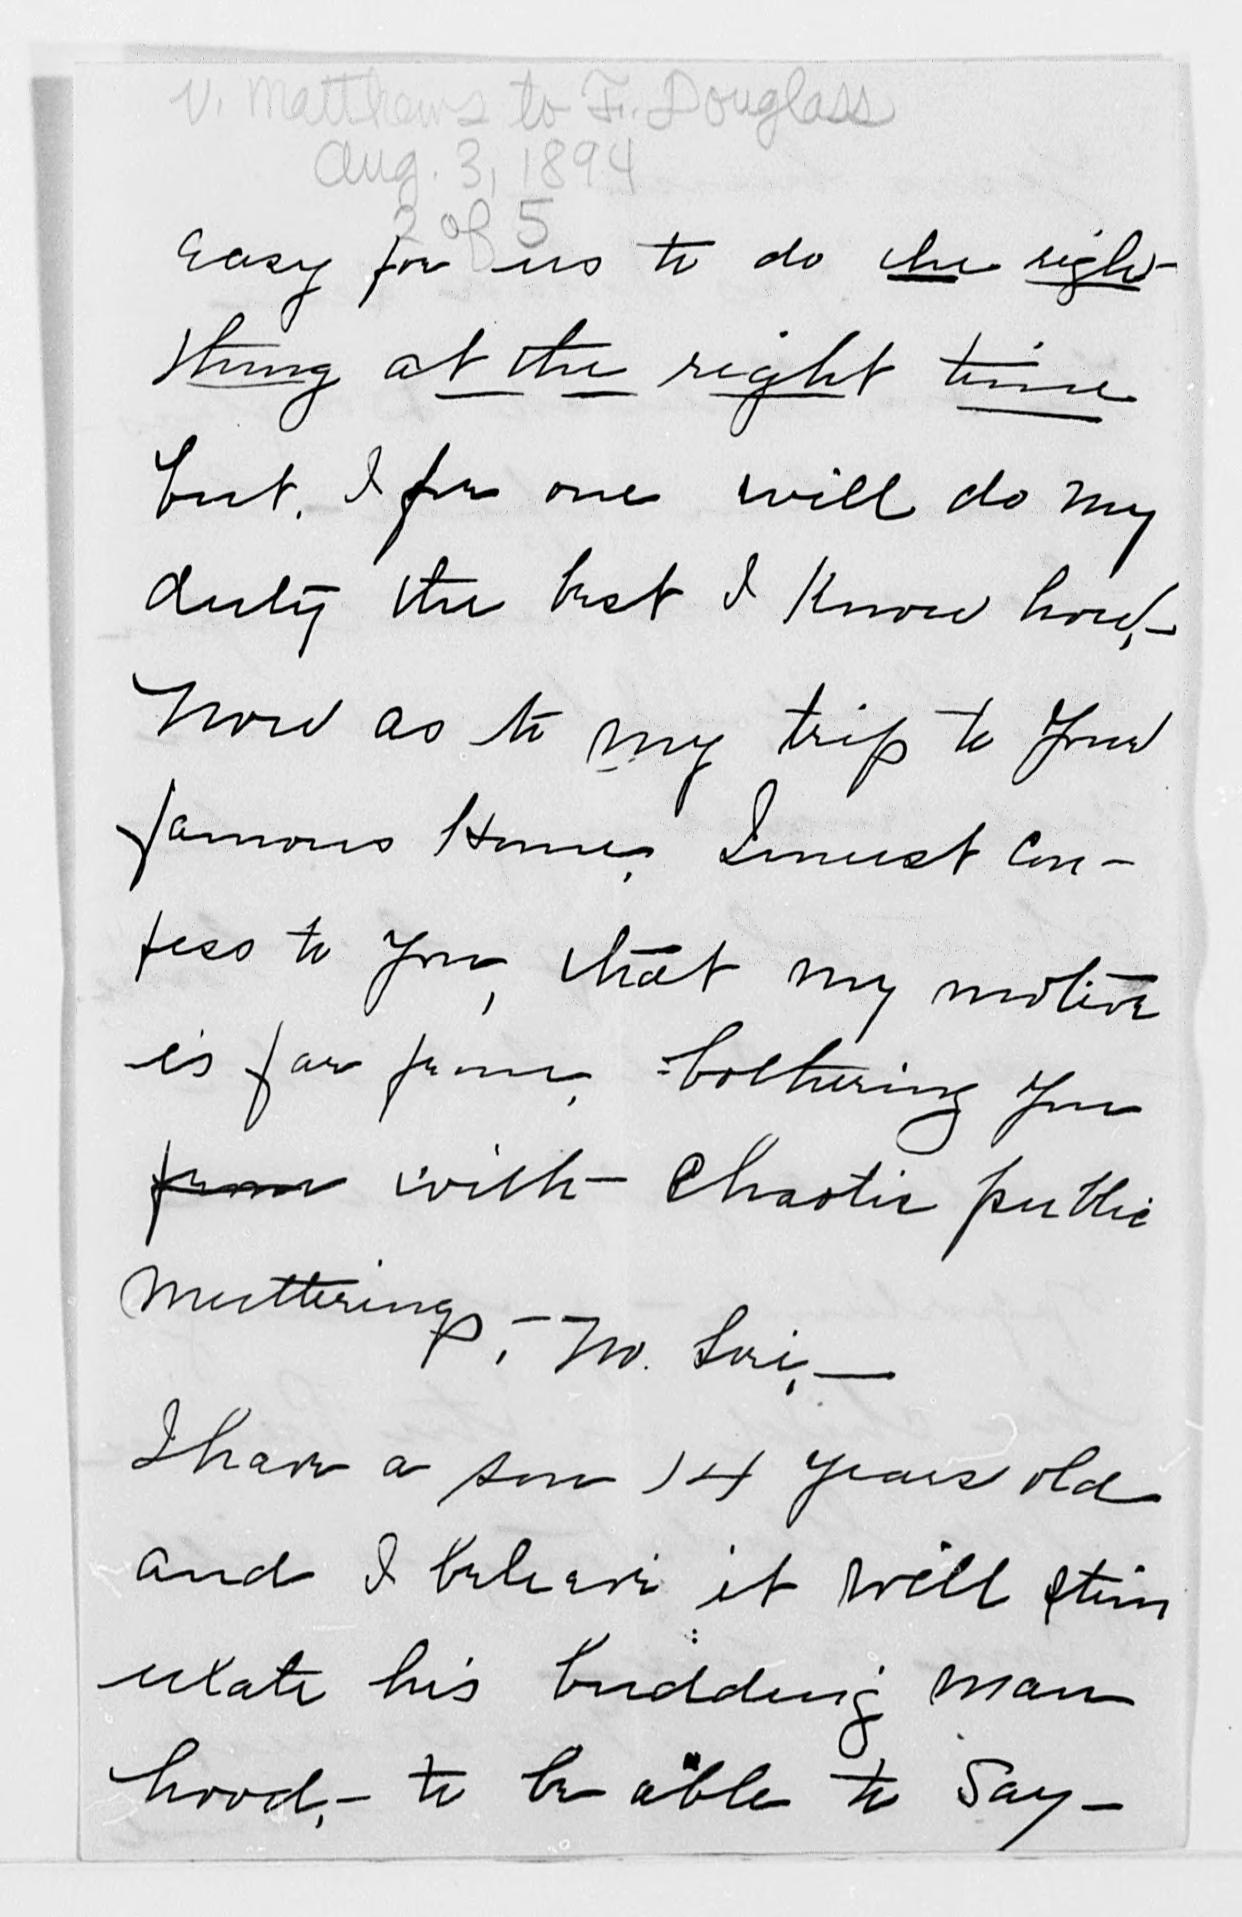 V. Matthews to F. Douglass
Aug. 3, 1894
2 of 5
easy for us to do the right
thing at the right time
but. I for one will do my
duty the best I know how,—
Now as to my trip to your
famous Home, I must con-
fess to you, that my motive
is far from, bothering you
from with chaotic public
mutterings,— No. Sir,—
I have a son 14 years old
and I beleave it will stim
ulate his budding man
hood,— to be able to say—